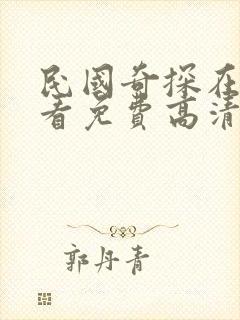 民國奇探在
看免費高清
郭丹青